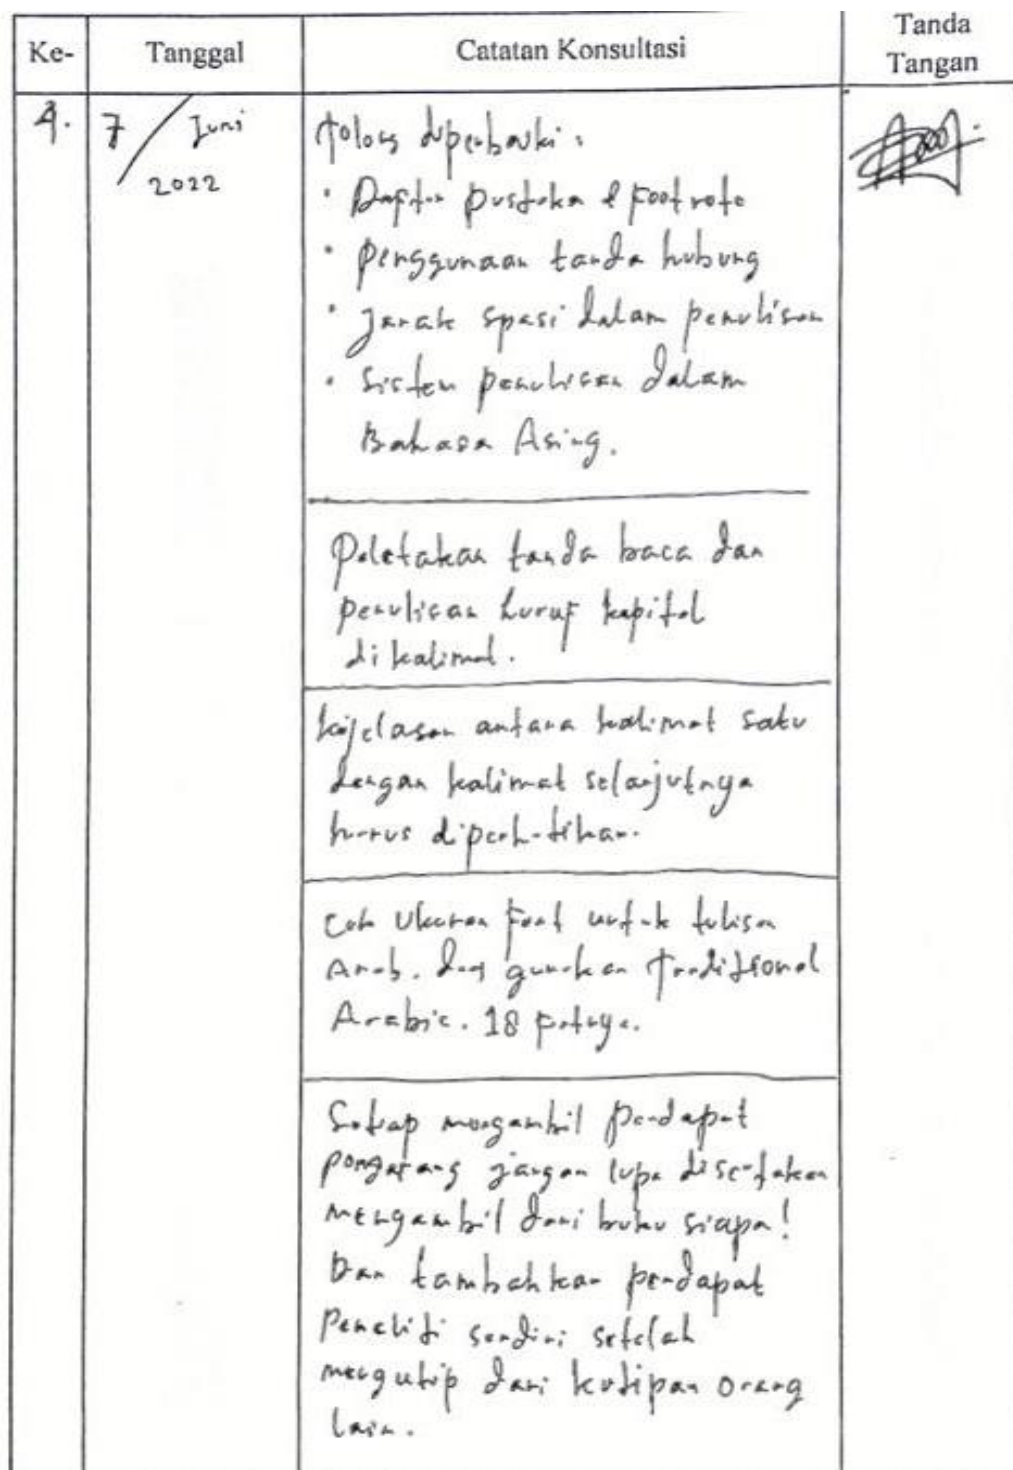 Ke-
Tanggal
Catatan Konsultasi
Tanda
Tangan
4.
7 / Juni
2022
Tolong diperbaiki :
· Daftar pustaka & Footnote
· Penggunaan tanda hubung
· Jarak spasi dalam penulisan
· Sistem penulisan dalam
Bahasa Asing.
Peletakan tanda baca dan
penulisan huruf kapital
di kalimat.
kejelasan antara kalimat satu
dengan kalimat selanjutnya
harus diperhatikan.
Cek Ukuran Font untuk tulisan
Arab. dan gunakan Traditional
Arabic. 18 fontnya.
Setiap mengambil pendapat
pengarang jangan lupa disertakan
mengambil dari buku siapa!
Dan tambahkan pendapat
Peneliti sendiri setelah
mengutip dari kutipan orang
lain.